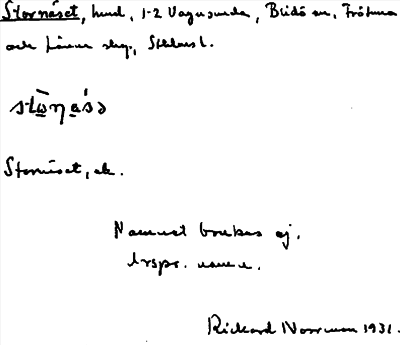 Stornäset, hmd, 1-2 Vagnsunda, Blidö sn, Frötuna
och Länna skg, Sthlms l.
Stornäset, ek.
Namnet brukas ej.
Urspr. namn.
Rickard Norrman 1931.